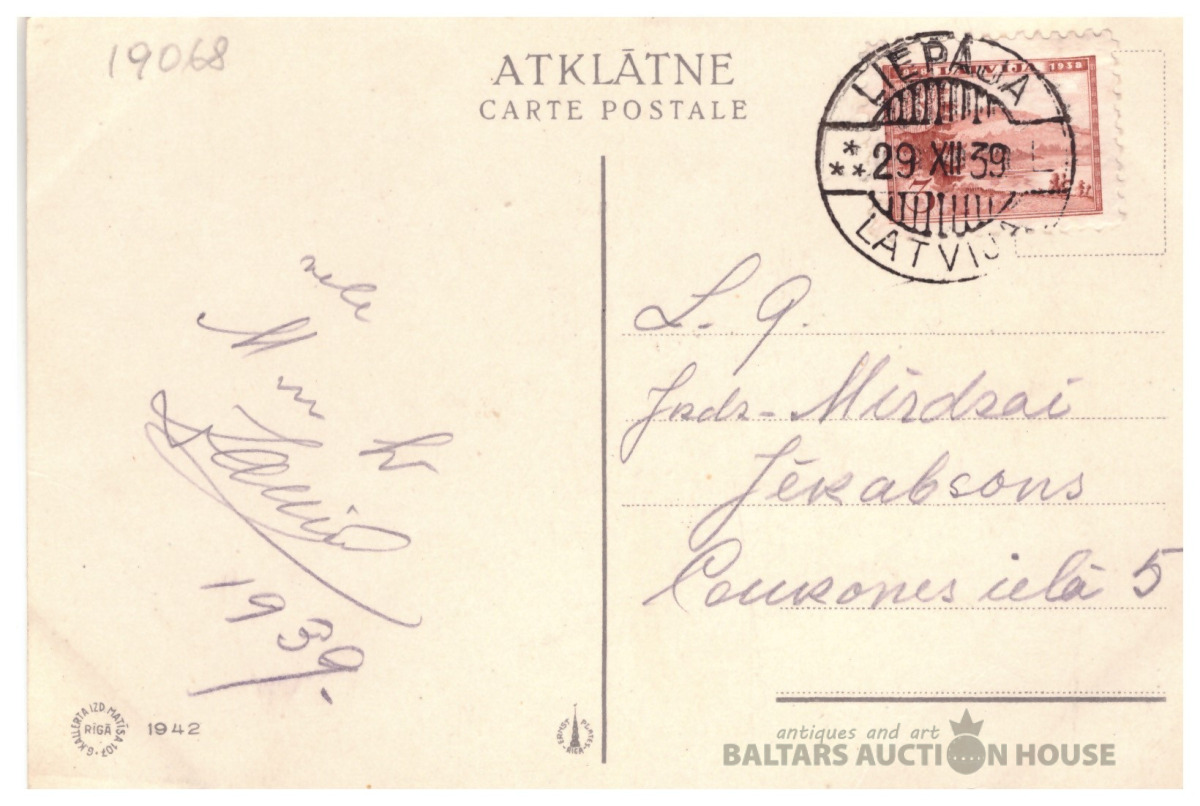 19068
ATKLĀTNE
CARTE POSTALE
LATVIJA 1938
LIEPĀJA
29 XII 39 L
LATVIJA
vele
M
1939.
L. g.
Jkdz- Mirdzai
Jēkabsons
ielā 5
G. KALLERTA IZD. MATĪSA 107
RĪGĀ
1942
ERNST PLATES
RIGA
antiques and art
BALTARS AUCTION HOUSE